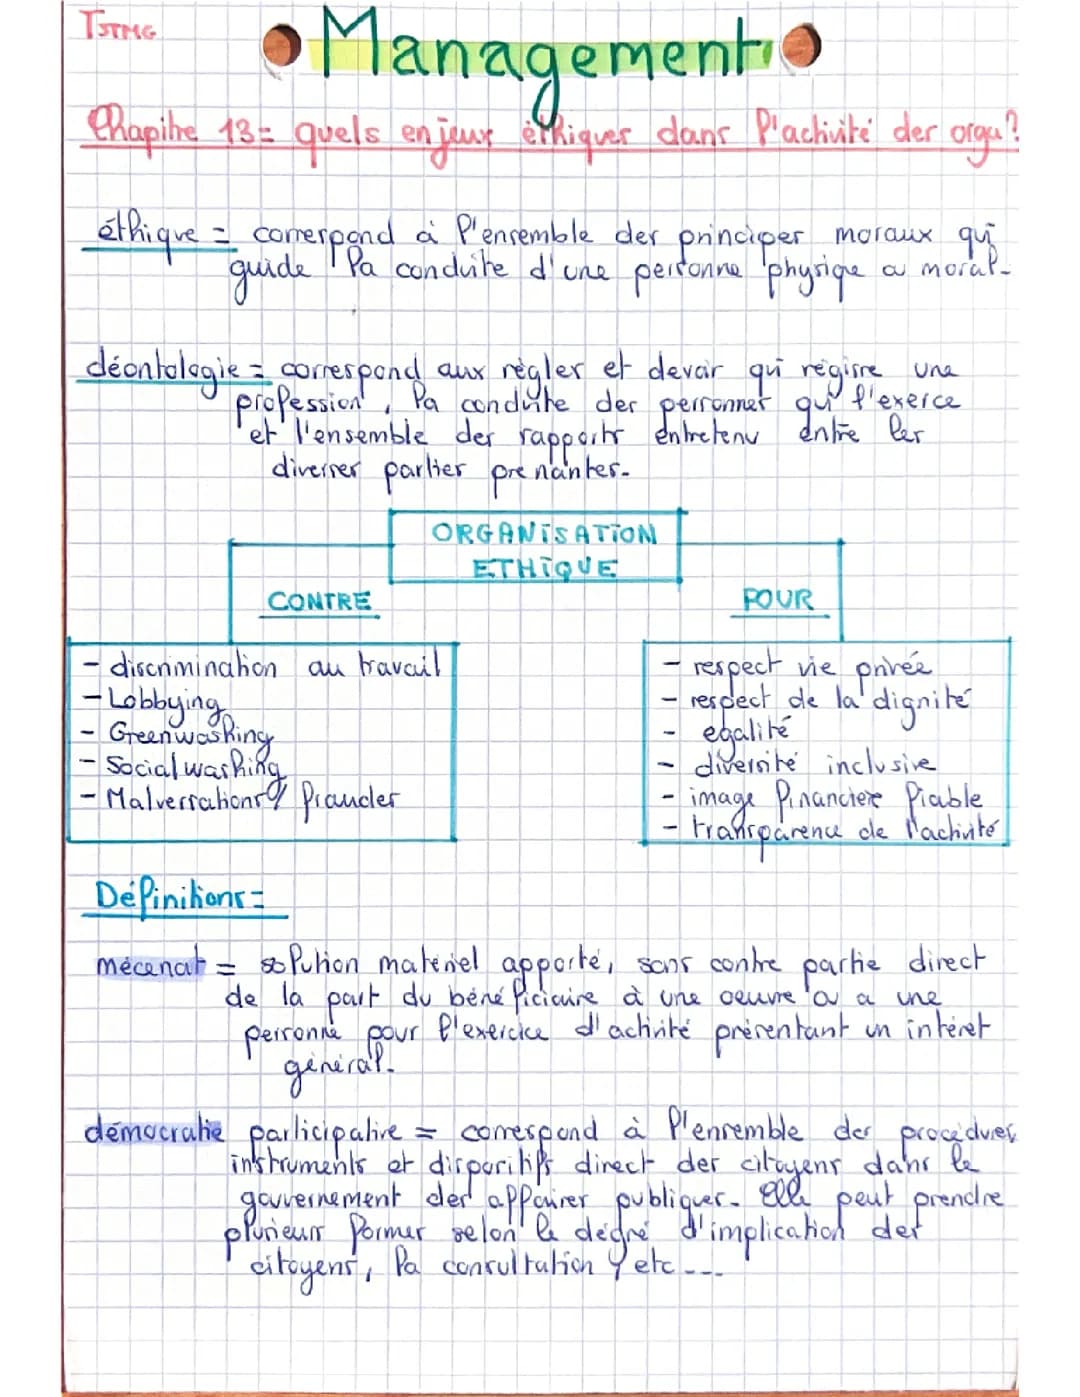 TSTMG
Management
Chapitre 13 = quels enjeux éthiques dans l'activité des orga?
éthique = correspond à l'ensemble des principes moraux qui
guide la conduite d'une personne physique ou moral.
déontologie = correspond aux règles et devoir qui régisse une
profession, la conduite des personnes qui l'exerce
et l'ensemble des rapports entretenu entre les
diverses parties prenantes.
ORGANISATION
ETHIQUE
CONTRE
POUR
- discrimination au travail
- Lobbying
- Greenwashing
- Social washing
- Malversations / fraudes
- respect vie privée
- respect de la dignité
- égalité
- diversité inclusive
- image financière fiable
- transparence de l'activité
Définitions =
mécénat = solution matériel apporté, sans contre partie direct
de la part du bénéficiaire à une oeuvre ou a une
personne pour l'exercice d'activité présentant un intéret
général.
démocratie participative = correspond à l'ensemble des procédures
instruments et dispositifs direct des citoyens dans le
gouvernement des affaires publiques. Elle peut prendre
plusieurs formes selon le degré d'implication des
citoyens, la consultation, etc....